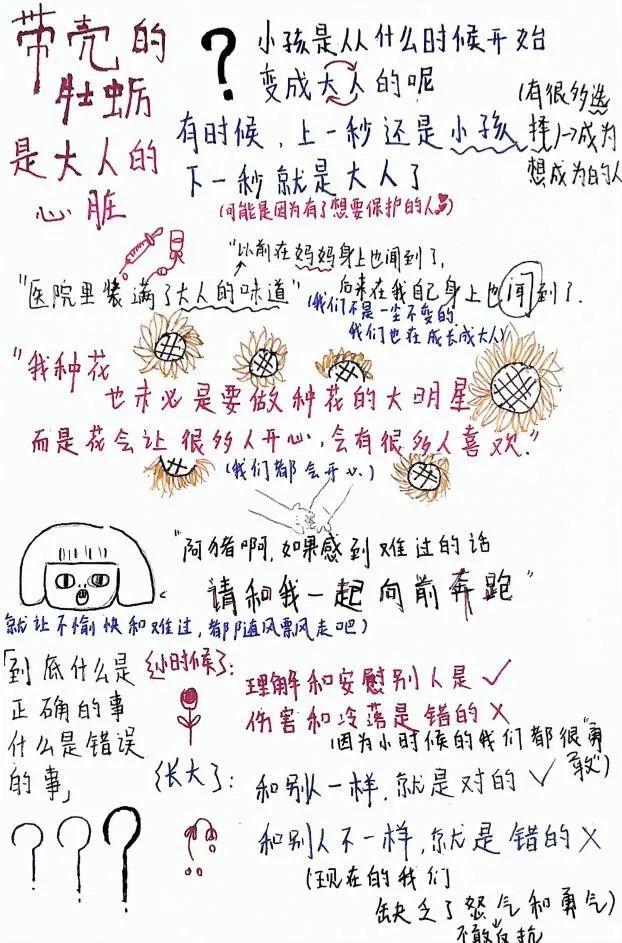 带壳的
牡蛎
是大人的
心脏
?
小孩是从什么时候开始
变成大人的呢
有时候,上一秒还是小孩
下一秒就是大人了
(有很多选
择)→成为
想成为的人
(可能是因为有了想要保护的人)
"以前在妈妈身上也闻到了,
"医院里装满了大人的味道"
后来在我自己身上也闻到了.
(我们不是一尘不变的,
我们也在成长成大人)
"我种花
也未必是要做种花的大明星
而是花会让很多人开心,会有很多人喜欢."
(我们都会开心)
"阿猪啊,如果感到难过的话
请和我一起向前奔跑"
就让不愉快和难过,都随风飘风走吧)
「到底什么是
正确的事
什么是错误
的事」
(小时候了):
理解和安慰别人是✓
伤害和冷落是错的×
(因为小时候的我们都很"勇
敢")
(长大了:
和别人一样,就是对的✓
和别人不一样,就是错的×
???
(现在的我们
缺乏了怒气和勇气)
不敢反抗